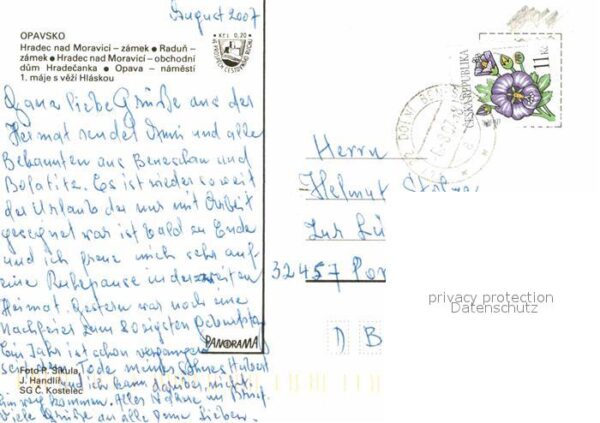 August 2007
OPAVSKO
Hradec nad Moravicí - zámek ● Raduň -
zámek ● Hradec nad Moravicí - obchodní
dům Hradečanka ● Opava - náměstí
1. máje s věží Hláskou
Kčs 0,20
Ganz liebe Grüße aus der
Heimat sendet Anni und alle
Bekannten aus Beneschau und
Bolatitz. Es ist wieder soweit
der Urlaub der nur mit Arbeit
gesegnet war ist bald zu Ende
und ich freue mich sehr auf
eine Ruhepause in der zweiten
Heimat. Gestern war noch eine
Nachfeier zum 80zigsten Geburtstag
Ein Jahr ist schon vergangen
seit dem Tode meines Sohnes Hubert
und ich kann darüber nicht
hinweg kommen. Alles
Viele Grüße an alle Deine Lieben.
PANORAMA
Foto P. Sikula,
J. Handlíř,
SG Č. Kostelec
ČESKÁ REPUBLIKA
11 Kč
DOLNÍ
Herrn
Helmut
Zur
32457 Por
D
privacy protection
Datenschutz